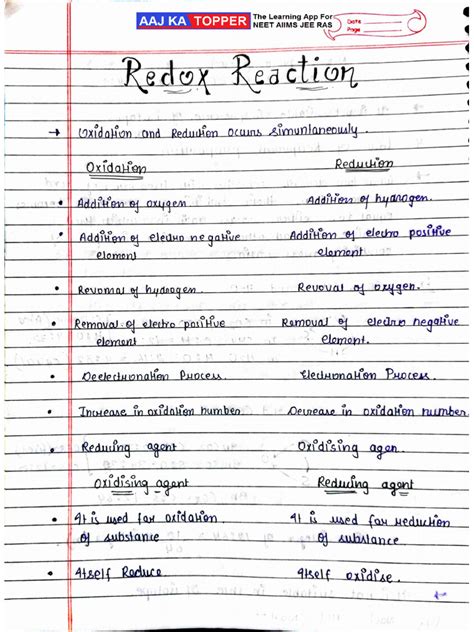 AAJ KA TOPPER The Learning App For NEET AIIMS JEE RAS
Date
Page
Redox Reaction
→ Oxidation and Reduction occurs simuntaneously.
Oxidation Reduction
• Addition of oxygen Addition of hydrogen.
• Addition of electro negative element Addition of electro positive element
• Revomal of hydrogen. Revoval of oxygen.
• Removal of electro positive element Removal of electro negative element.
• Deelectronation Process. Electronation Process.
• Increase in oxidation number. Decrease in oxidation number.
• Reducing agent Oxidising agen.
Oxidising agent Reducing agent
• It is used for oxidation of substance It is used for reduction of substance
• Itself Reduce Itself oxidise.